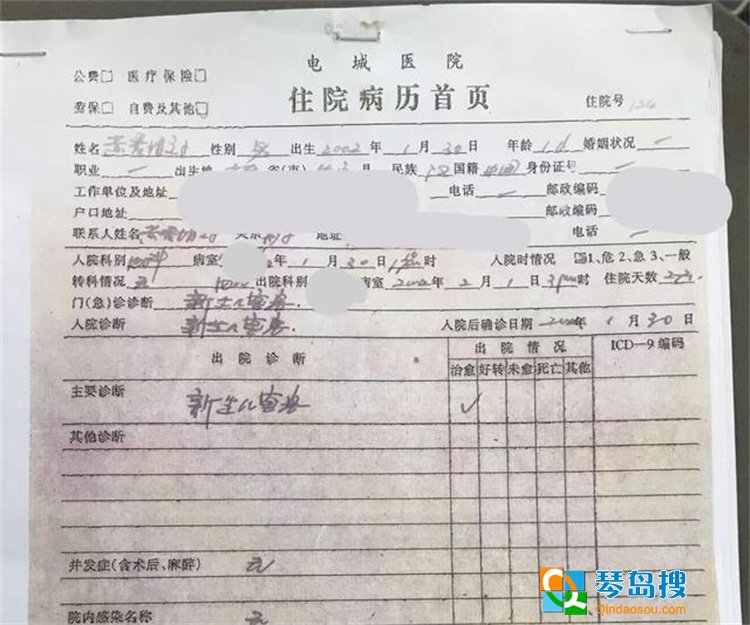 电城医院
公费□ 医疗保险□
住院病历首页
住院号 124
劳保□ 自费及其他□
姓名 性别 出生 2002 年 1 月 30 日 年龄 1d 婚姻状况 一
职业 一 出生地 省(市) 民族 汉 国籍 中国 身份证号 一
工作单位及地址 电话 一 邮政编码
户口地址 邮政编码
联系人姓名 关系 地址 电话 一
入院科别 病室 2 年 1 月 30 日 时 入院时情况 1、危 2、急 3、一般
转科情况 无 出院科别 病室 2002 年 2 月 1 日 3pm 时 住院天数
门(急)诊诊断 新生儿窒息
入院诊断 新生儿窒息 入院后确诊日期 2002 年 1 月 30 日
出院诊断 出院情况 ICD—9 编码
治愈 好转 未愈 死亡 其他
主要诊断 新生儿窒息 ✓
其他诊断
并发症(含术后、麻醉) 无
院内感染名称 无
琴岛搜
Qindaosou.com